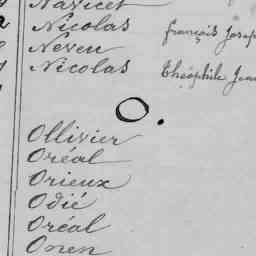 Navicet
Nicolas françois Josep
Neveu
Nicolas théophile Jean
O.
Ollivier
Oréal
Orieux
Odié
Oréal
Onen